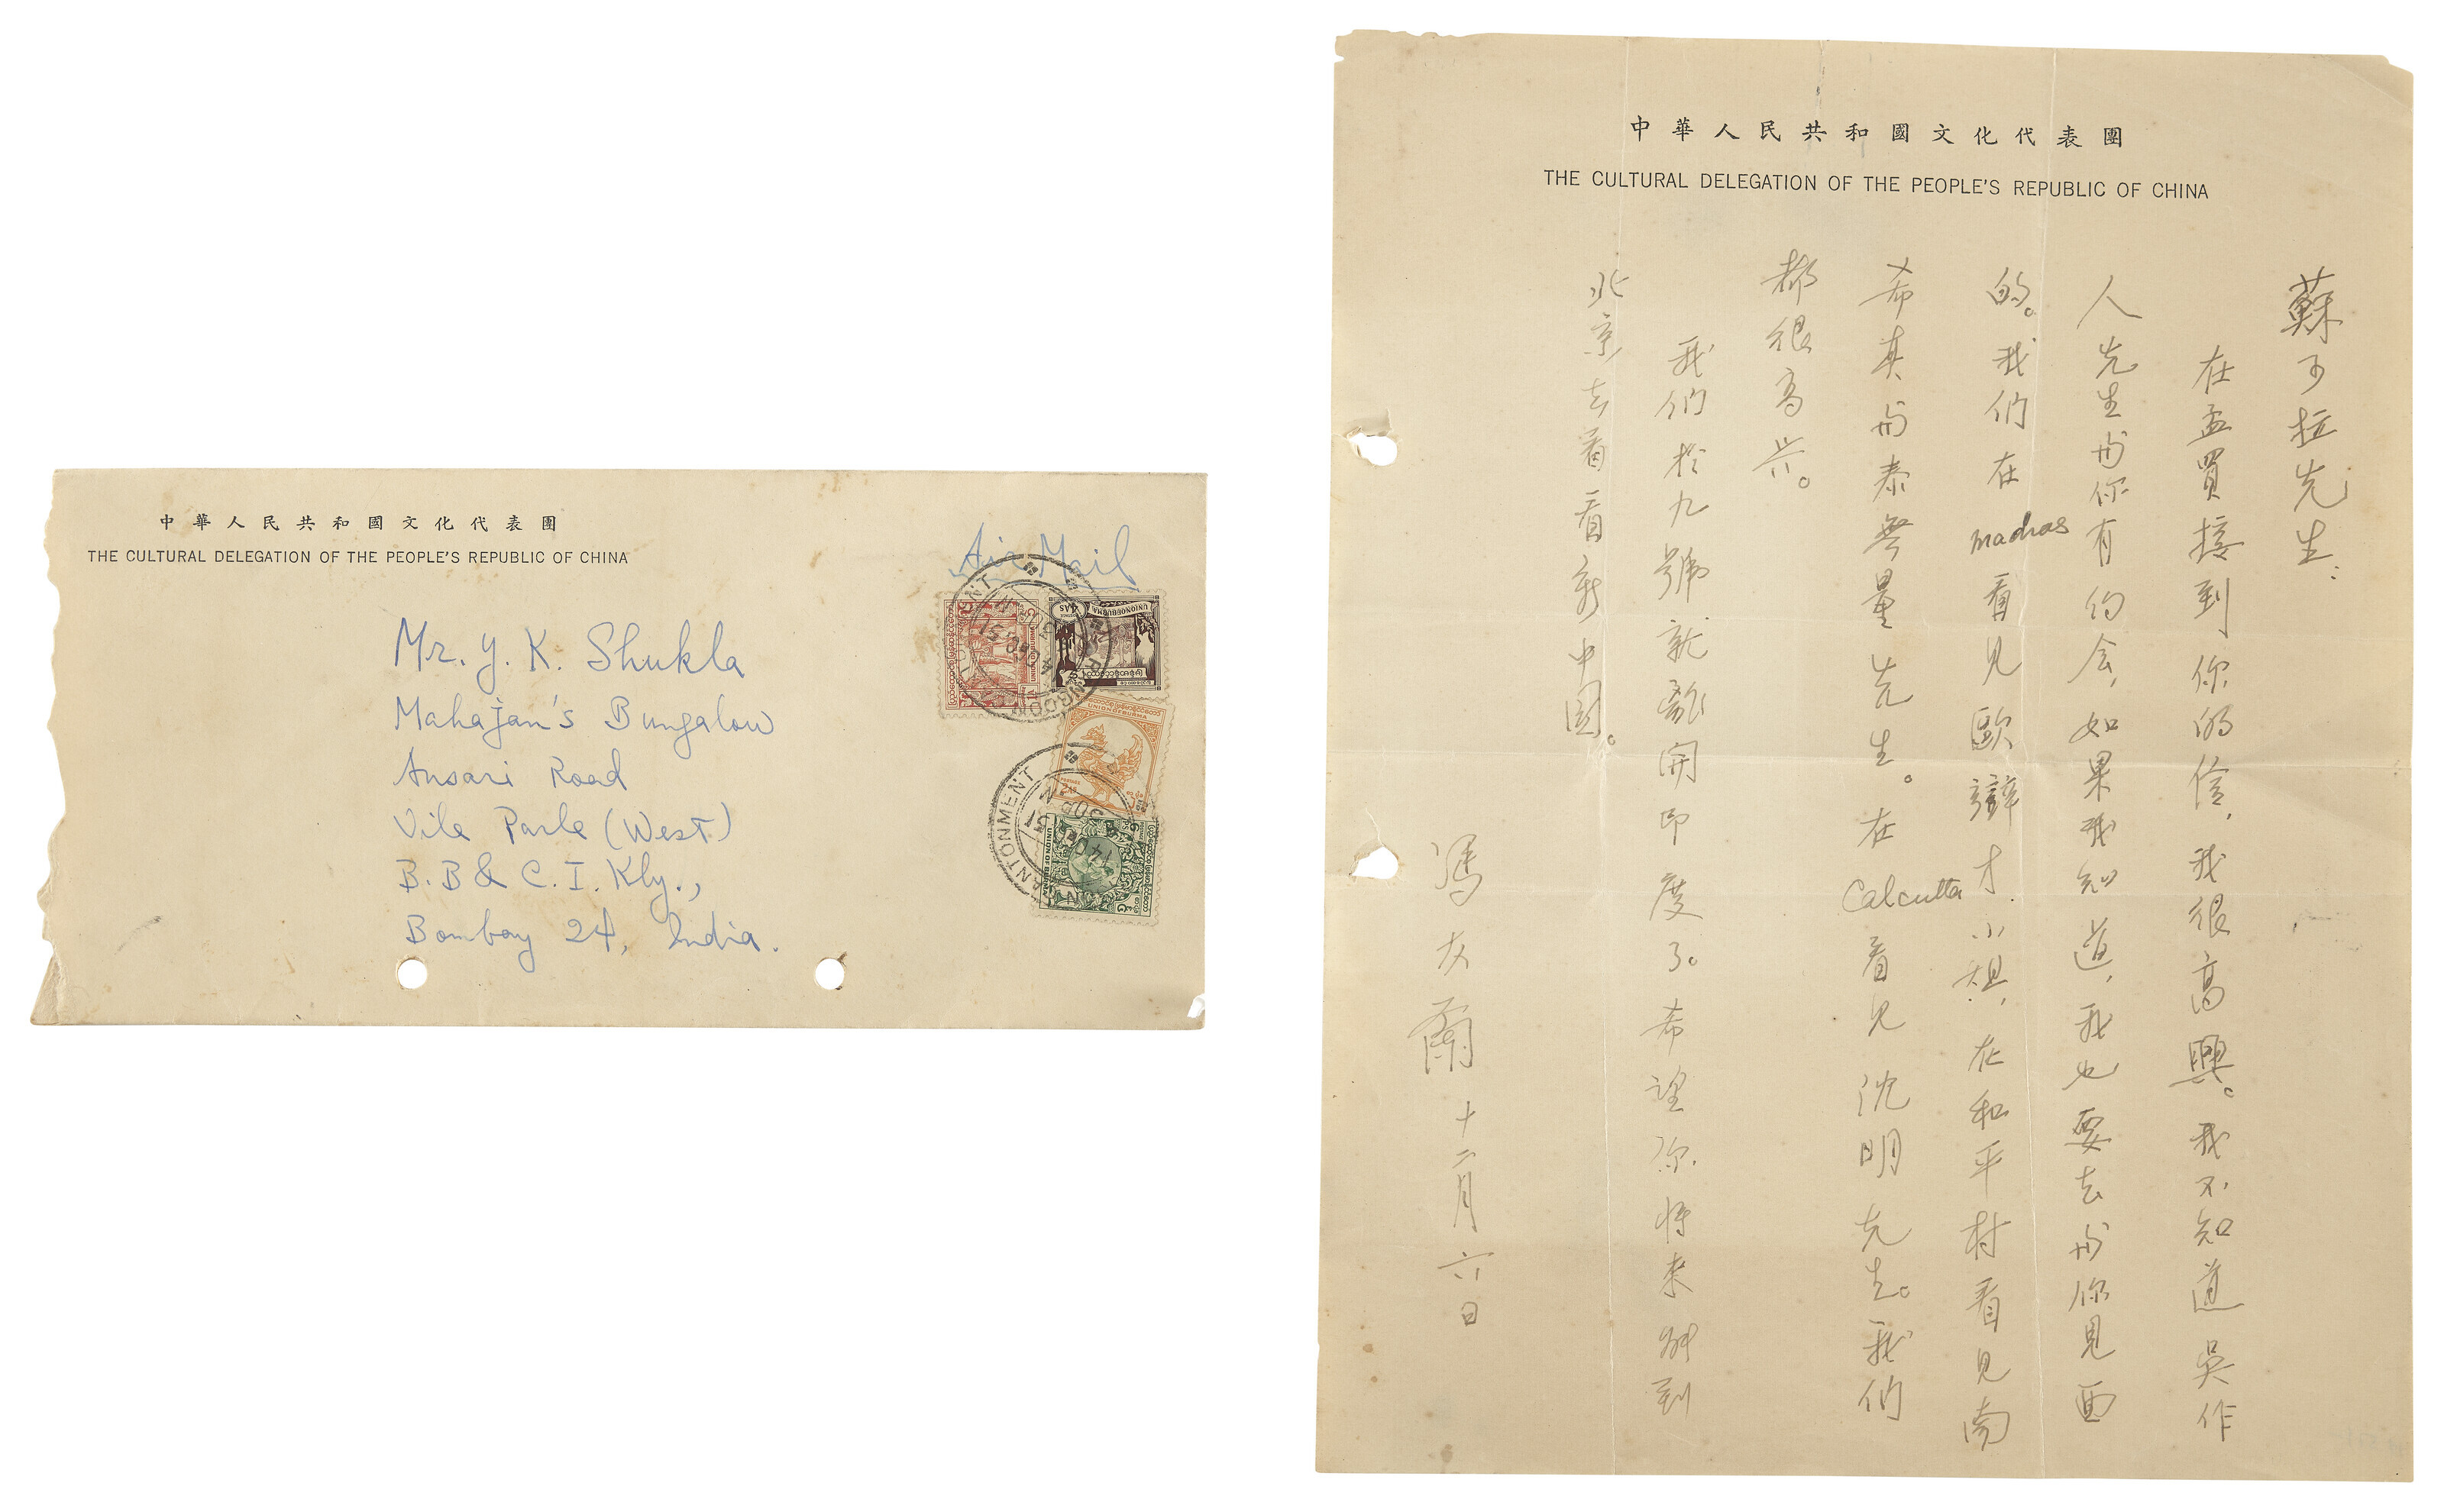 中華人民共和國文化代表團
THE CULTURAL DELEGATION OF THE PEOPLE'S REPUBLIC OF CHINA
Air Mail
Mr. Y. K. Shukla
Mahajan's Bungalow
Ansari Road
Vile Parle (West)
B.B & C.I. Rly.,
Bombay 24, India.
UNION OF BURMA
UNION OF BURMA
4AS
UNION OF BURMA
UNION OF BURMA
RANGOON
CANTONMENT
中華人民共和國文化代表團
THE CULTURAL DELEGATION OF THE PEOPLE'S REPUBLIC OF CHINA
蘇可拉先生:
在孟買接到你的信,我很高興。我不知道吳作
人先生与你有约会,如果我知道,我也要去与你見面
的。我们在 madras 看見歐辯才小姐,在和平村看見南
希真与泰無量先生。在 Calcutta 看見沈明先生。我们
都很高兴。
我們於九號就離開印度了。希望你將来能到
北京去看看新中國。
馮友蘭 十二月六日